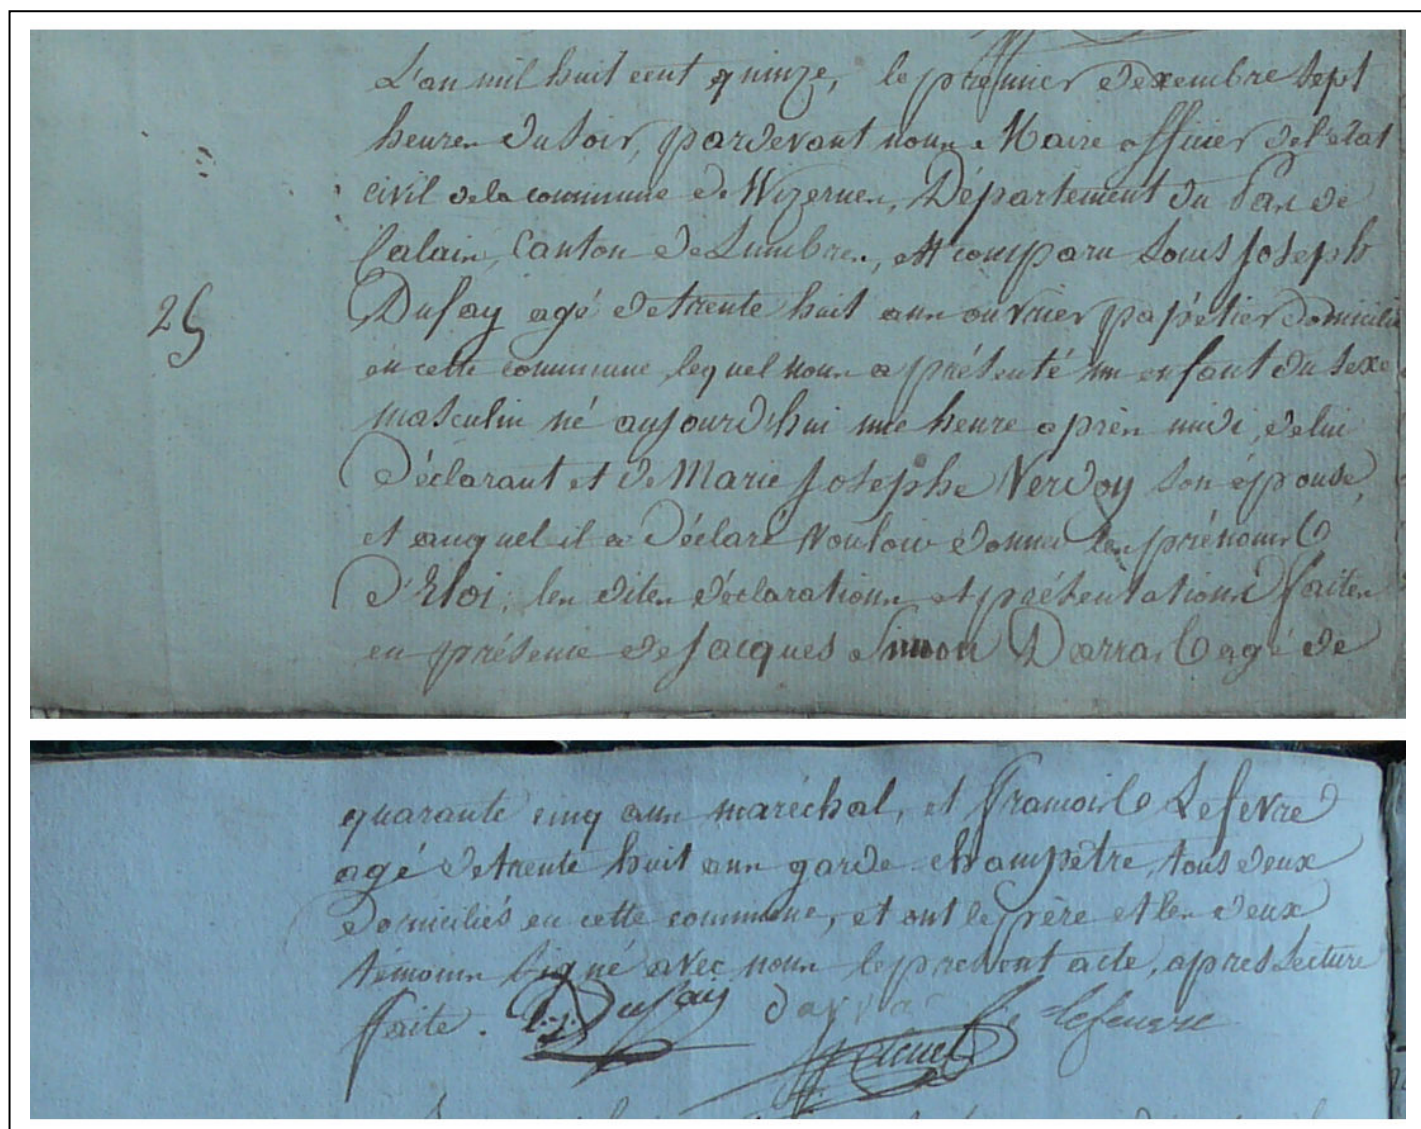 L'an mil huit cent quinze, le premier Dexembre sept
heures du soir, pardevant nous Maire officier de l'etat
civil de la commune de Wizernes, Département du Pas de
Calais, Canton de Lumbres, est comparu Louis Joseph
Dufay agé de trente huit ans ouvrier papétier domicilié
en cette commune lequel nous a présenté un enfant du sexe
masculin né aujourd'hui une heure après midi, de lui
déclarant et de Marie Josephe Verdoy son épouse,
et auquel il a déclaré vouloir donner les prénoms
25
d'Eloi, les dites déclarations et présentations faites
en présence de Jacques Simon Darras agé de
quarante cinq ans maréchal, et François Lefevre
agé de trente huit ans garde champêtre, tous deux
domiciliés en cette commune, et ont le père et les deux
témoins signé avec nous le present acte, apres Lecture
faite. Dufay darra lefeuvre